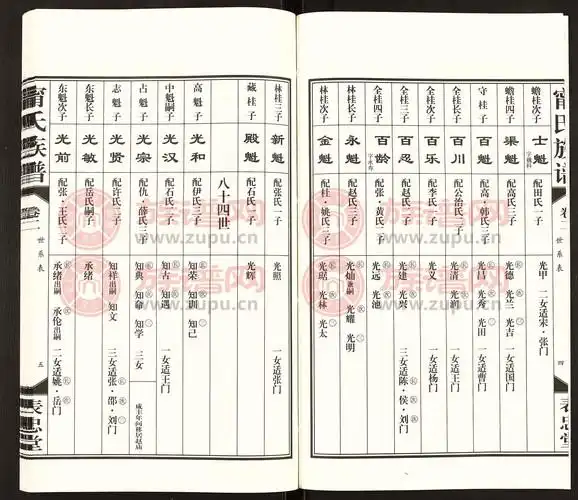 甯氏族谱
卷二
世系表
四
表忠堂
蟾桂次子 士魁 字桃科 配田氏一子 光甲 二女适宋·张门
蟾桂四子 渠魁 配高氏三子 光德 光兰 光吉 一女适国门
守桂子 百魁 配高·韩氏三子 光昌 光秀 光田 一女适曹门
全桂长子 百川 配公治氏二子 光清 光润 一女适王门
全桂次子 百乐 配李氏一子 光义 一女适杨门
全桂三子 百忍 配赵氏二子 光建 光兴 三女适陈·侯·刘门
全桂四子 百龄 字永寿 配张·黄氏二子 光远 光池
林桂长子 永魁 配赵氏三子 光灿 兼嗣 光耀 光明
林桂次子 金魁 配·姚氏三子 光琚 光林 光太
林桂三子 新魁 配张氏一子 光照 一女适张门
藏桂子 殿魁 配石氏一子 光辉
八十四世
高魁子 光和 配伊氏三子 知荣 知训 知己
中魁嗣子 光汉 配石氏二子 知古 知遇 一女适王门
占魁子 光宗 配仇·薛氏三子 知典 知命 知学 三女 咸丰年间移居赵庙
志魁子 光贤 配许氏二子 知祥 出嗣 知文 三女适张·邵·刘门
东魁长子 光敏 配岳氏嗣子 承绪
东魁次子 光前 配张·王氏二子 承绪 出嗣 承伦 出嗣 二女适姚·岳门
甯氏族谱
卷二
世系表
五
表忠堂
族谱网
www.zupu.cn